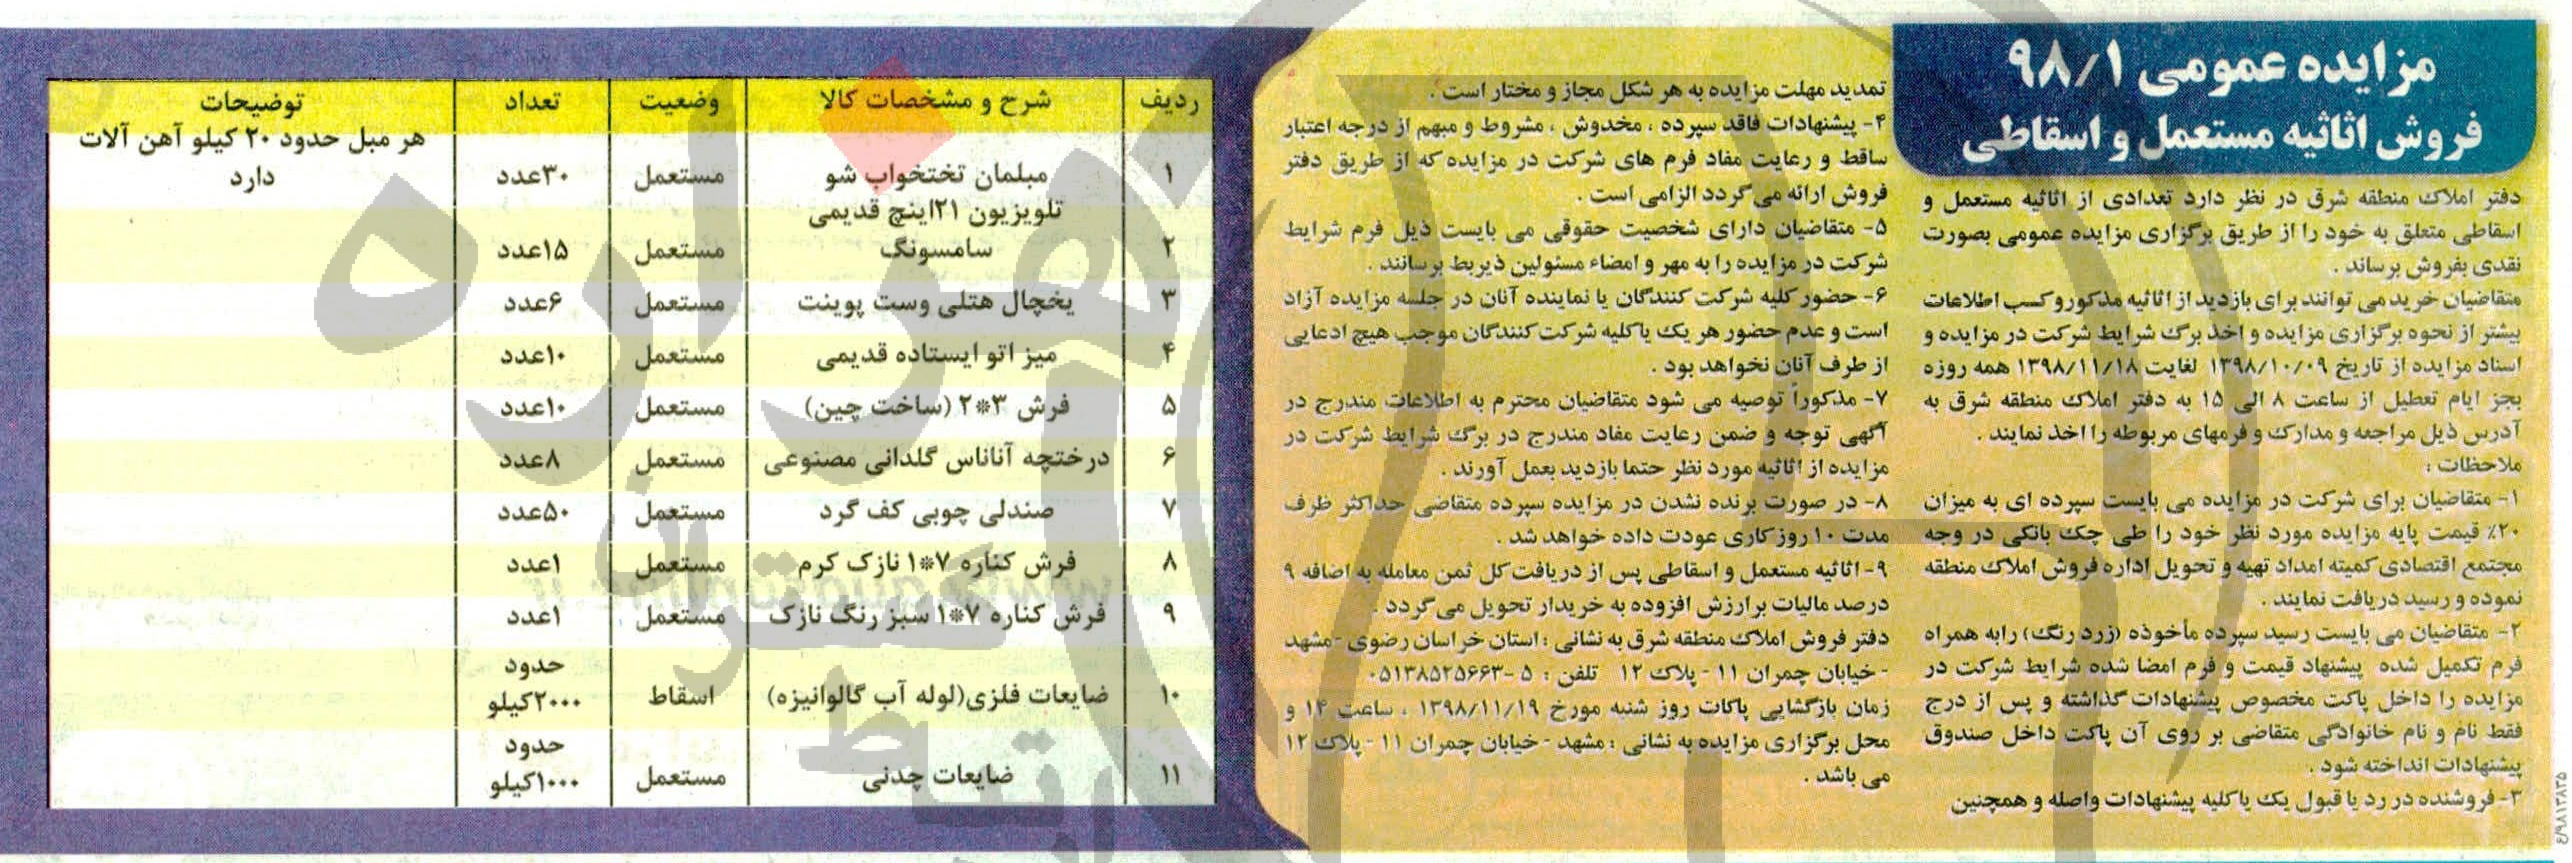 مزایده عمومی ۹۸/۱
فروش اثاثیه مستعمل و اسقاطی
دفتر املاک منطقه شرق در نظر دارد تعدادی از اثاثیه مستعمل و
اسقاطی متعلق به خود را از طریق برگزاری مزایده عمومی بصورت
نقدی بفروش برساند .
متقاضیان خرید می توانند برای بازدید از اثاثیه مذکور و کسب اطلاعات
بیشتر از نحوه برگزاری مزایده و اخذ برگ شرایط شرکت در مزایده و
اسناد مزایده از تاریخ ۱۳۹۸/۱۰/۰۹ لغایت ۱۳۹۸/۱۱/۱۸ همه روزه
بجز ایام تعطیل از ساعت ۸ الی ۱۵ به دفتر املاک منطقه شرق به
آدرس ذیل مراجعه و مدارک و فرمهای مربوطه را اخذ نمایند .
ملاحظات :
۱- متقاضیان برای شرکت در مزایده می بایست سپرده ای به میزان
۲۰٪ قیمت پایه مزایده مورد نظر خود را طی چک بانکی در وجه
مجتمع اقتصادی کمیته امداد تهیه و تحویل اداره فروش املاک منطقه
نموده و رسید دریافت نمایند .
۲- متقاضیان می بایست رسید سپرده مأخوذه (زرد رنگ) رابه همراه
فرم تکمیل شده پیشنهاد قیمت و فرم امضا شده شرایط شرکت در
مزایده را داخل پاکت مخصوص پیشنهادات گذاشته و پس از درج
فقط نام و نام خانوادگی متقاضی بر روی آن پاکت داخل صندوق
پیشنهادات انداخته شود .
۳- فروشنده در رد یا قبول یک یا کلیه پیشنهادات واصله و همچنین
تمدید مهلت مزایده به هر شکل مجاز و مختار است .
۴- پیشنهادات فاقد سپرده ، مخدوش ، مشروط و مبهم از درجه اعتبار
ساقط و رعایت مفاد فرم های شرکت در مزایده که از طریق دفتر
فروش ارائه می گردد الزامی است .
۵- متقاضیان دارای شخصیت حقوقی می بایست ذیل فرم شرایط
شرکت در مزایده را به مهر و امضاء مسئولین ذیربط برسانند .
۶- حضور کلیه شرکت کنندگان یا نماینده آنان در جلسه مزایده آزاد
است و عدم حضور هر یک یا کلیه شرکت کنندگان موجب هیچ ادعایی
از طرف آنان نخواهد بود .
۷- مذکوراً توصیه می شود متقاضیان محترم به اطلاعات مندرج در
آگهی توجه و ضمن رعایت مفاد مندرج در برگ شرایط شرکت در
مزایده از اثاثیه مورد نظر حتما بازدید بعمل آورند .
۸- در صورت برنده نشدن در مزایده سپرده متقاضی حداکثر ظرف
مدت ۱۰ روز کاری عودت داده خواهد شد .
۹- اثاثیه مستعمل و اسقاطی پس از دریافت کل ثمن معامله به اضافه ۹
درصد مالیات بر ارزش افزوده به خریدار تحویل می گردد .
دفتر فروش املاک منطقه شرق به نشانی : استان خراسان رضوی - مشهد
- خیابان چمران ۱۱ - پلاک ۱۲ تلفن : ۵ -۰۵۱۳۸۵۲۵۶۶۳
زمان بازگشایی پاکات روز شنبه مورخ ۱۳۹۸/۱۱/۱۹ ، ساعت ۱۴ و
محل برگزاری مزایده به نشانی : مشهد - خیابان چمران ۱۱ - پلاک ۱۲
می باشد .
ردیف شرح و مشخصات کالا وضعیت تعداد توضیحات
۱ مبلمان تختخواب شو مستعمل ۳۰عدد هر مبل حدود ۲۰ کیلو آهن آلات
دارد
۲ تلویزیون ۲۱اینچ قدیمی
سامسونگ مستعمل ۱۵عدد
۳ یخچال هتلی وست پوینت مستعمل ۶عدد
۴ میز اتو ایستاده قدیمی مستعمل ۱۰عدد
۵ فرش ۳*۲ (ساخت چین) مستعمل ۱۰عدد
۶ درختچه آناناس گلدانی مصنوعی مستعمل ۸عدد
۷ صندلی چوبی کف گرد مستعمل ۵۰عدد
۸ فرش کناره ۷*۱ نازک کرم مستعمل ۱عدد
۹ فرش کناره ۷*۱ سبز رنگ نازک مستعمل ۱عدد
۱۰ ضایعات فلزی(لوله آب گالوانیزه) اسقاط حدود
۲۰۰۰کیلو
۱۱ ضایعات چدنی مستعمل حدود
۱۰۰۰کیلو
هزاره